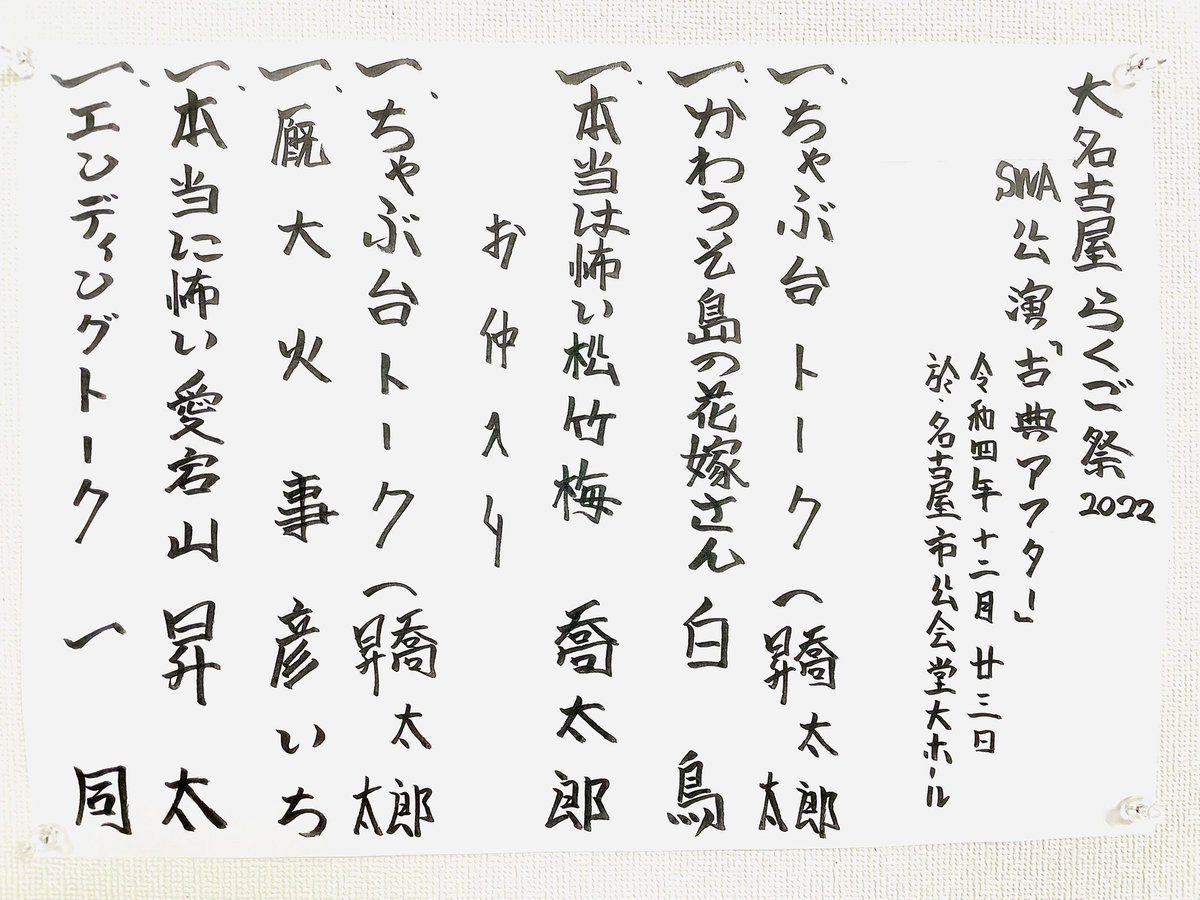 大名古屋らくご祭2022
SWA公演「古典アフター」
令和四年十二月廿三日
於・名古屋市公会堂大ホール
一、ちゃぶ台トーク(喬太郎 昇太
一、かわうそ島の花嫁さん 白鳥
一、本当は怖い松竹梅 喬太郎
お仲入り
一、ちゃぶ台トーク(喬太郎 昇太
一、厩大火事 彦いち
一、本当に怖い愛宕山 昇太
一、エンディングトーク 一同